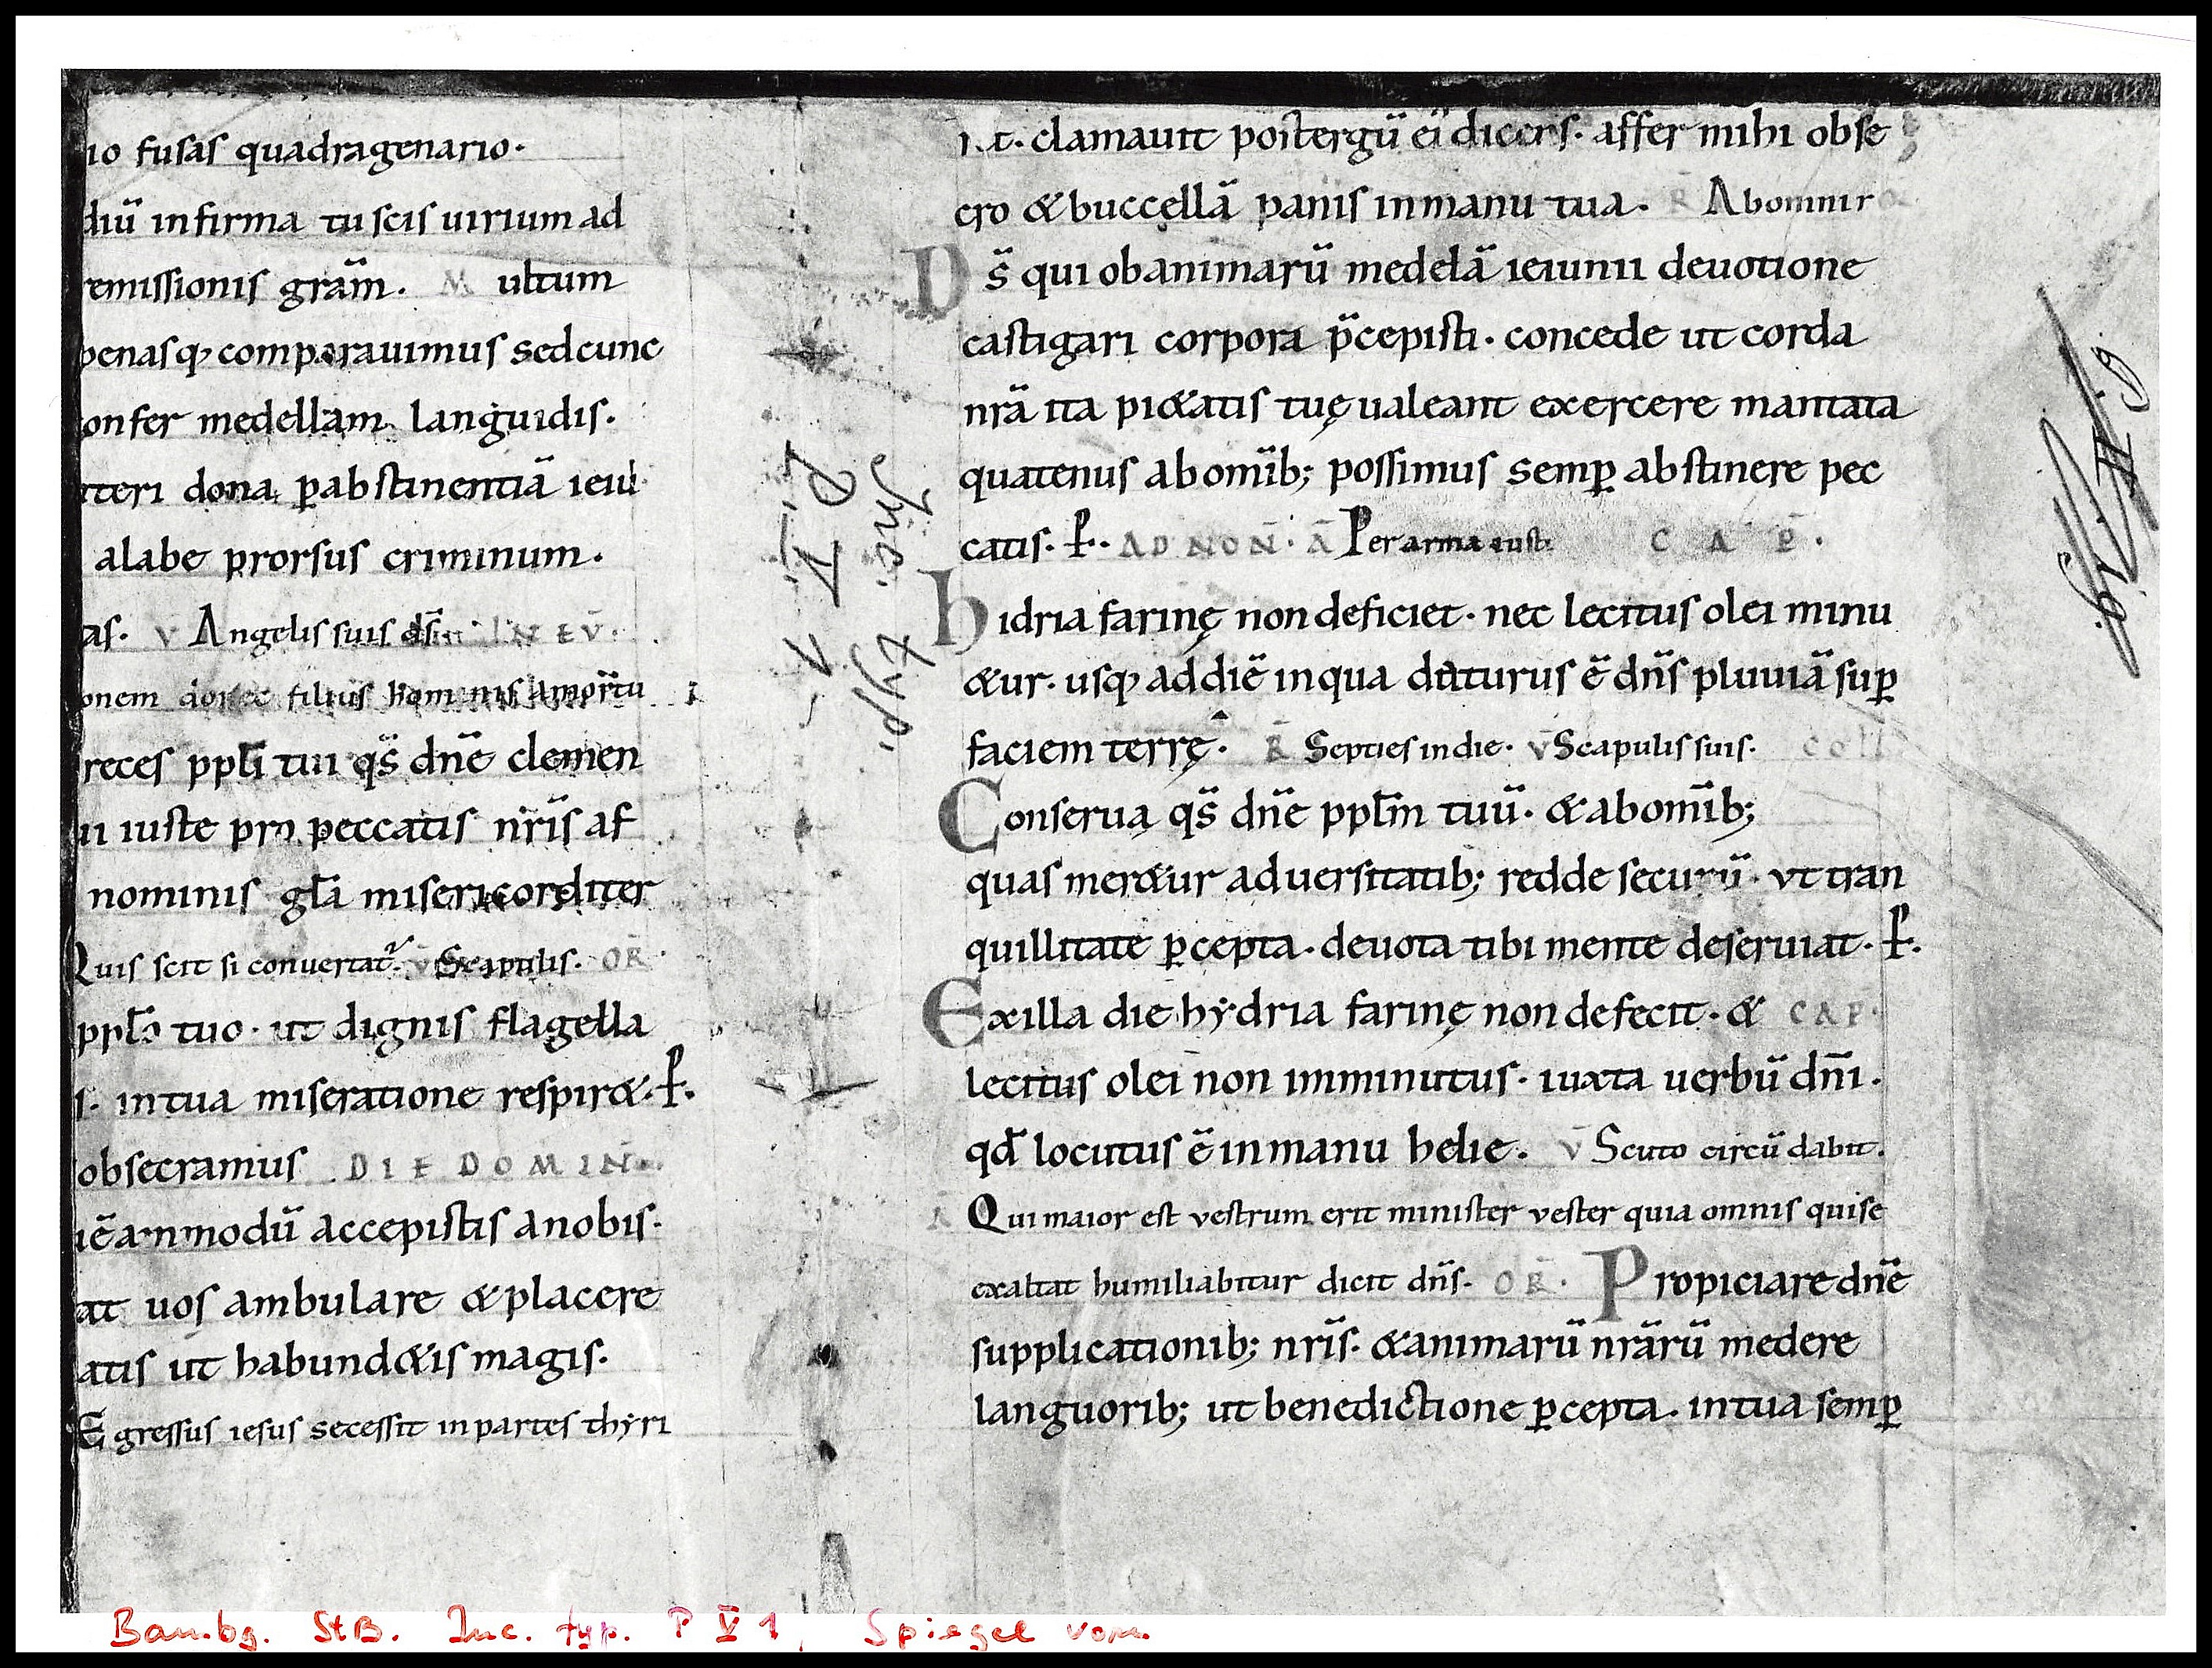 io fusas quadragenario.
diū infirma tu scis uirium ad
remissionis grām. M ultum
penasq; comparauimus sed cunc
onfer medellam languidis.
rteri dona p̱ abstinentiā ieiu
alabe prorsus criminum.
as. V Angelis suis d̄s. IN EV̄.
onem donec filius hominis amortu
reces ppłi tui qs̄ dn̄e clemen
ii iuste pro peccatis nr̄is af
nominis gła misericorditer
Quis scit si conuertat̃. V̄ Scapulis. OR̄.
ppło tuo. ut dignis flagella
s. intua miseratione respir&. P̱.
obsecramus DIE DOMIN.
modū accepistis anobis.
at uos ambulare & placere
atis ut habund&is magis.
Egressus iesus secessit in partes thyri
Inc. typ.
P. V. 1
t. clamauit postergū eī dicens. affer mihi obse
cro & buccęllā panis inmanu tua. R̄ Abomnir
D s̄ qui obanimarū medelā ieiunii deuotione
castigari corpora p̄cepisti. concede ut corda
nr̄a ita pi&atis tuę ualeant exercere mantata
quatenus abomīb; possimus semp̱ abstinere pec
catis. P̱. AD NON̄. Ā Per arma iust. CAP̄.
hidria farinę non deficiet. nec lecitus olei minu
&ur. usq; addiē inqua daturus ē dn̄s pluuiā sup̱
faciem terrę. R̄ Septies in die. V̄ Scapulis suis. COLL
Conserua qs̄ dn̄e ppłm tuū. & abomīb;
quas mer&ur aduersitatib; redde securū. ut tran
quillitate p̱cepta. deuota tibi mente deseruiat. P̱.
Exilla die hẏdria farinę non defecit. & CAP.
lecitus olei non imminutus. iuxta uerbū dn̄i.
qđ locutus ē inmanu helie. V̄ Scuto circū dabit.
A Qui maior est vestrum erit minister vester quia omnis quise
exaltat humiliabitur dicit dn̄s. OR̄. Propiciare dn̄e
supplicationib; nr̄is. & animarū nr̄arū medere
languorib; ut benedictione p̱cepta. intua semp̱
Bambg. StB. Inc. typ. P V 1, Spiegel vorn.